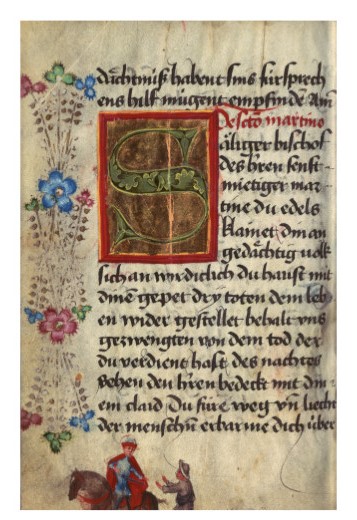 dächtnüß habent sins fürsprech
ens hilf mügent empfinde Am
De scto martino
Säliger bischof
des hren senft
mietiger mar
tine du edels
klainet din an
gedächtig volk
sich an wirdiclich du haust mit
dine gepet dry toten dem leb
en wider gestellet behalt vns
gezwengten von dem tod der
du verdient hast des nachtes
sehen den hren bedeckt mit din
em claid Du füre weg vn liecht
der menschn erbarme dich über